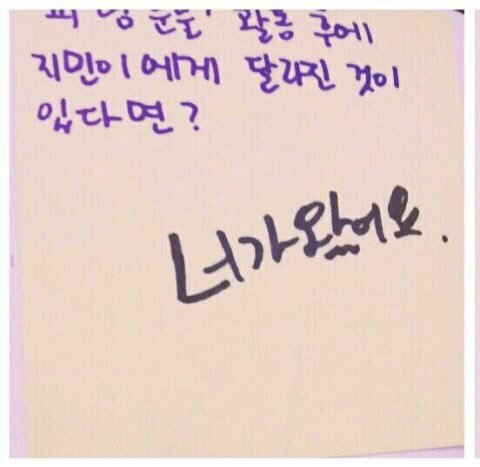 피 땀 눈물' 활동 후에
지민이에게 달라진 것이
있다면?
너가왔어요.